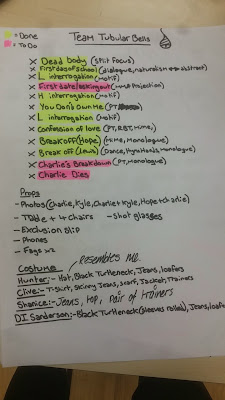 = Done
= To Do
Team Tubular Bells
x Dead body (Split Focus)
x First day of school (dialogue, naturalism → abstract)
x L interrogation (motif)
x First date/asking out (Projection)
x H interrogation (motif)
x You Don't Own Me (PT)
x L interrogation (motif)
x Confession of love (PT, RBT, Mime,)
x Break off (Hope) (Mime, Monologue)
x Break off (Lewis) (Dance, Monologue)
x Charlie's Breakdown (PT, Monologue)
x Charlie Dies
Props
- Photos (Charlie, Kyle, Charlie + Kyle, Hope + Charlie)
- Table + 4 Chairs - Shot glasses
- Exclusion Slip
- Phones
- Fags x2
Costume resembles me.
Hunter:- Hat, Black Turtleneck, Jeans, loafers
Clive:- T-Shirt, Skinny Jeans, Scarf, Jacket, Trainers
Shanice:- Jeans, top, Pair of trainers
DI Sanderson:- Black Turtleneck (sleeves rolled), Jeans, loafers